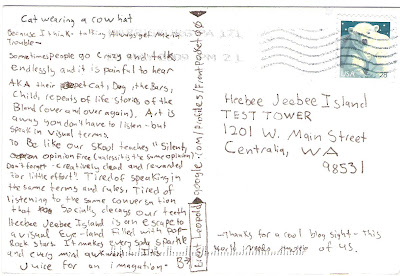 Cat wearing a cow hat
Because I think talking Always get me in
Trouble-
Sometimes people go crazy and talk
endlessly and it is painful to hear
AKA their pet cat, Dog, the Bars,
Child, repeats of life stories of the
Bland (over and over again). Art is
away you don't have to listen - but
speak in visual terms.
To Be like our skool teaches "Silent,
opinion Free (unless it's the same opinion)
Don't forget - creatively dead and rewarded
For little effort". Tired of speaking in
the same terms and rules. Tired of
listening to the same conversation
that Socially decays our teeth
Heebee Jeebee Island is an escape to
a visual Eye-land Filled with pop-
Rock stars. It makes every body sparkle
and every mind awkward. It is
Juice for an imagation.
google.com/profiles/
28
Heebee Jeebee Island
TEST TOWER
1201 W. Main Street
Centralia, WA
98531
-thanks for a cool blog sight - This
world needs more of us.